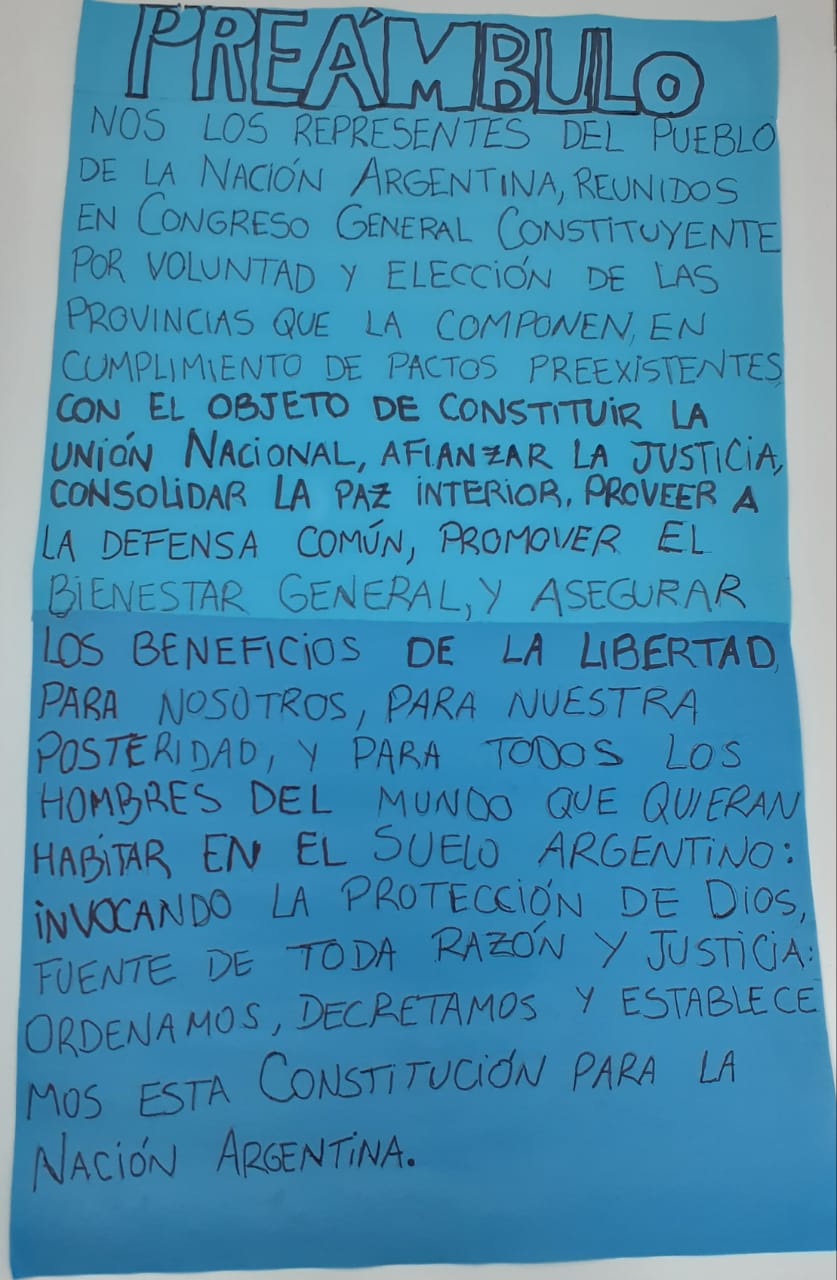 PREÁMBULO
NOS LOS REPRESENTES DEL PUEBLO
DE LA NACIÓN ARGENTINA, REUNIDOS
EN CONGRESO GENERAL CONSTITUYENTE
POR VOLUNTAD Y ELECCIÓN DE LAS
PROVINCIAS QUE LA COMPONEN, EN
CUMPLIMIENTO DE PACTOS PREEXISTENTES,
CON EL OBJETO DE CONSTITUIR LA
UNIÓN NACIONAL, AFIANZAR LA JUSTICIA,
CONSOLIDAR LA PAZ INTERIOR, PROVEER A
LA DEFENSA COMÚN, PROMOVER EL
BIENESTAR GENERAL, Y ASEGURAR
LOS BENEFICIOS DE LA LIBERTAD,
PARA NOSOTROS, PARA NUESTRA
POSTERIDAD, Y PARA TODOS LOS
HOMBRES DEL MUNDO QUE QUIERAN
HABITAR EN EL SUELO ARGENTINO:
INVOCANDO LA PROTECCIÓN DE DIOS,
FUENTE DE TODA RAZÓN Y JUSTICIA:
ORDENAMOS, DECRETAMOS Y ESTABLECE
MOS ESTA CONSTITUCIÓN PARA LA
NACIÓN ARGENTINA.